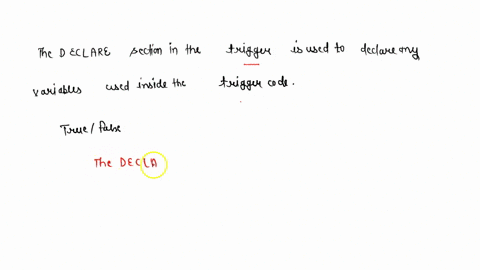 The DECLARE section in the trigger is used to declare any
variables used inside the trigger code.
True/False
The DECLA